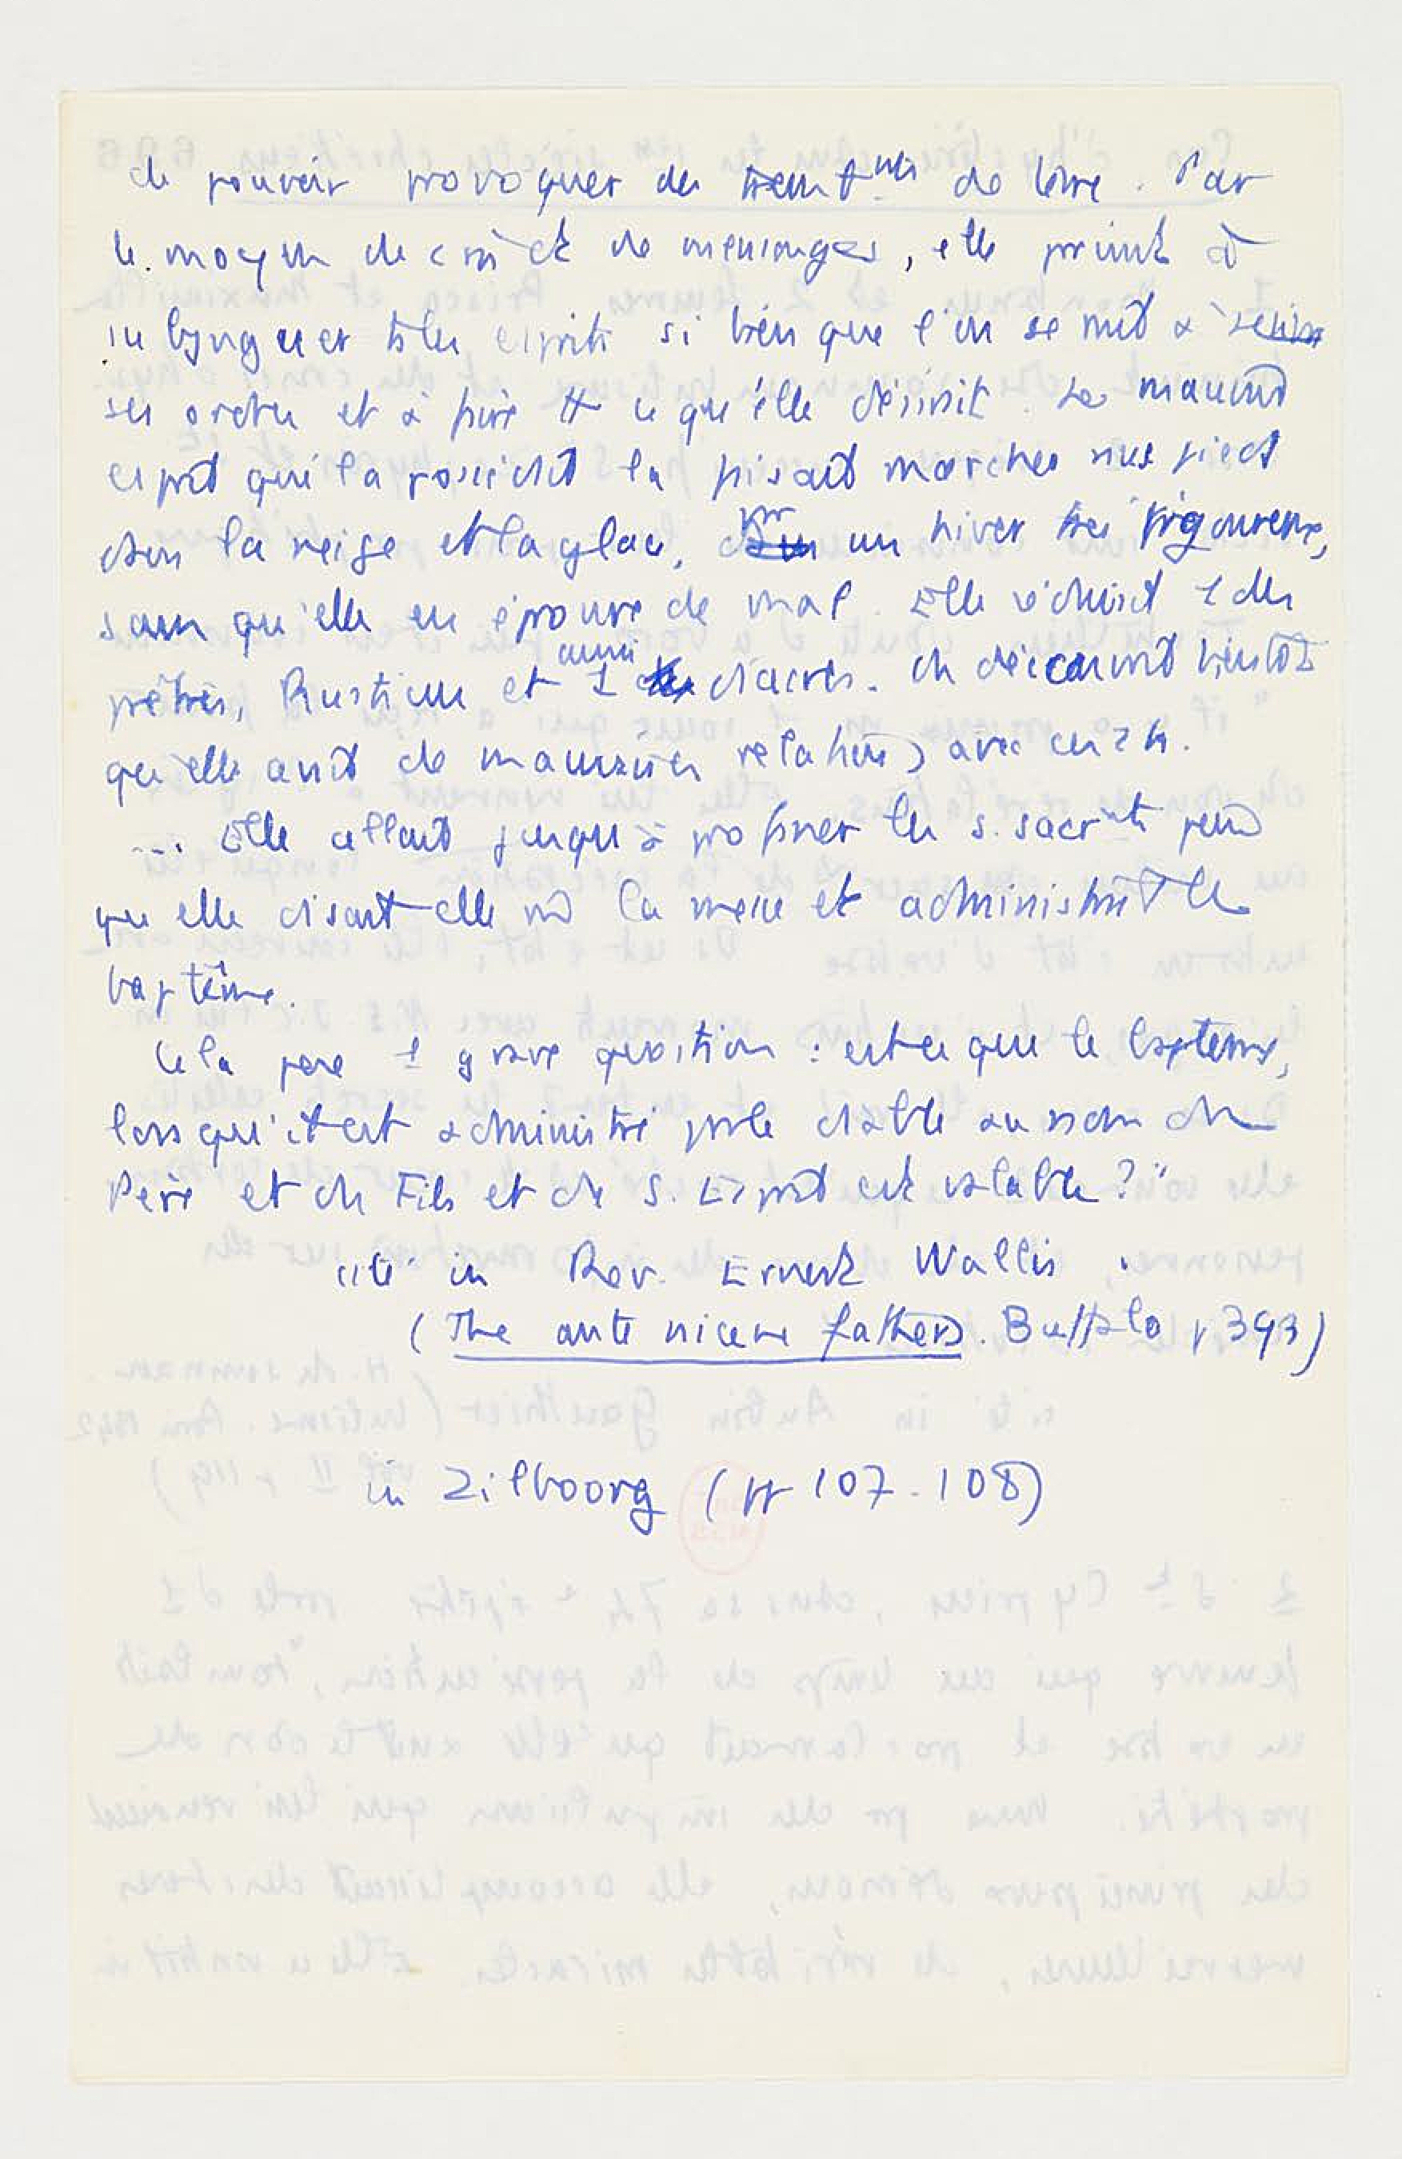 de pouvoir provoquer des tremt nts de terre. Par
le moyen de cris et de mensonges, elle parvint à
subjuguer ts les esprits si bien que l'on se mit à suivre
ses ordres et à faire tt ce qu'elle désirait. Le mauvais
esprit qui la possédait la faisait marcher nus pieds
dans la neige et la glace, par un hiver très rigoureux,
sans qu'elle en éprouve de mal. Elle séduisit 1 des
prêtres, Rusticus et aussi 1 diacre. On découvrit bientôt
qu'elle avait de mauvaises relations avec ces 2 h.
... Elle allait jusqu'à profaner les s. sacrnts pend
que elle disait-elle la messe et administrait le
baptême.
Cela pose 1 grave question : est-ce que le baptême,
lorsqu'il est administré par le diable au nom du
Père et du Fils et du S. Esprit est valable ?"
cité in Rev. Ernest Wallis.
(The ante nicene fathers. Buffalo p 393)
in Zilboorg (pp 107-108)